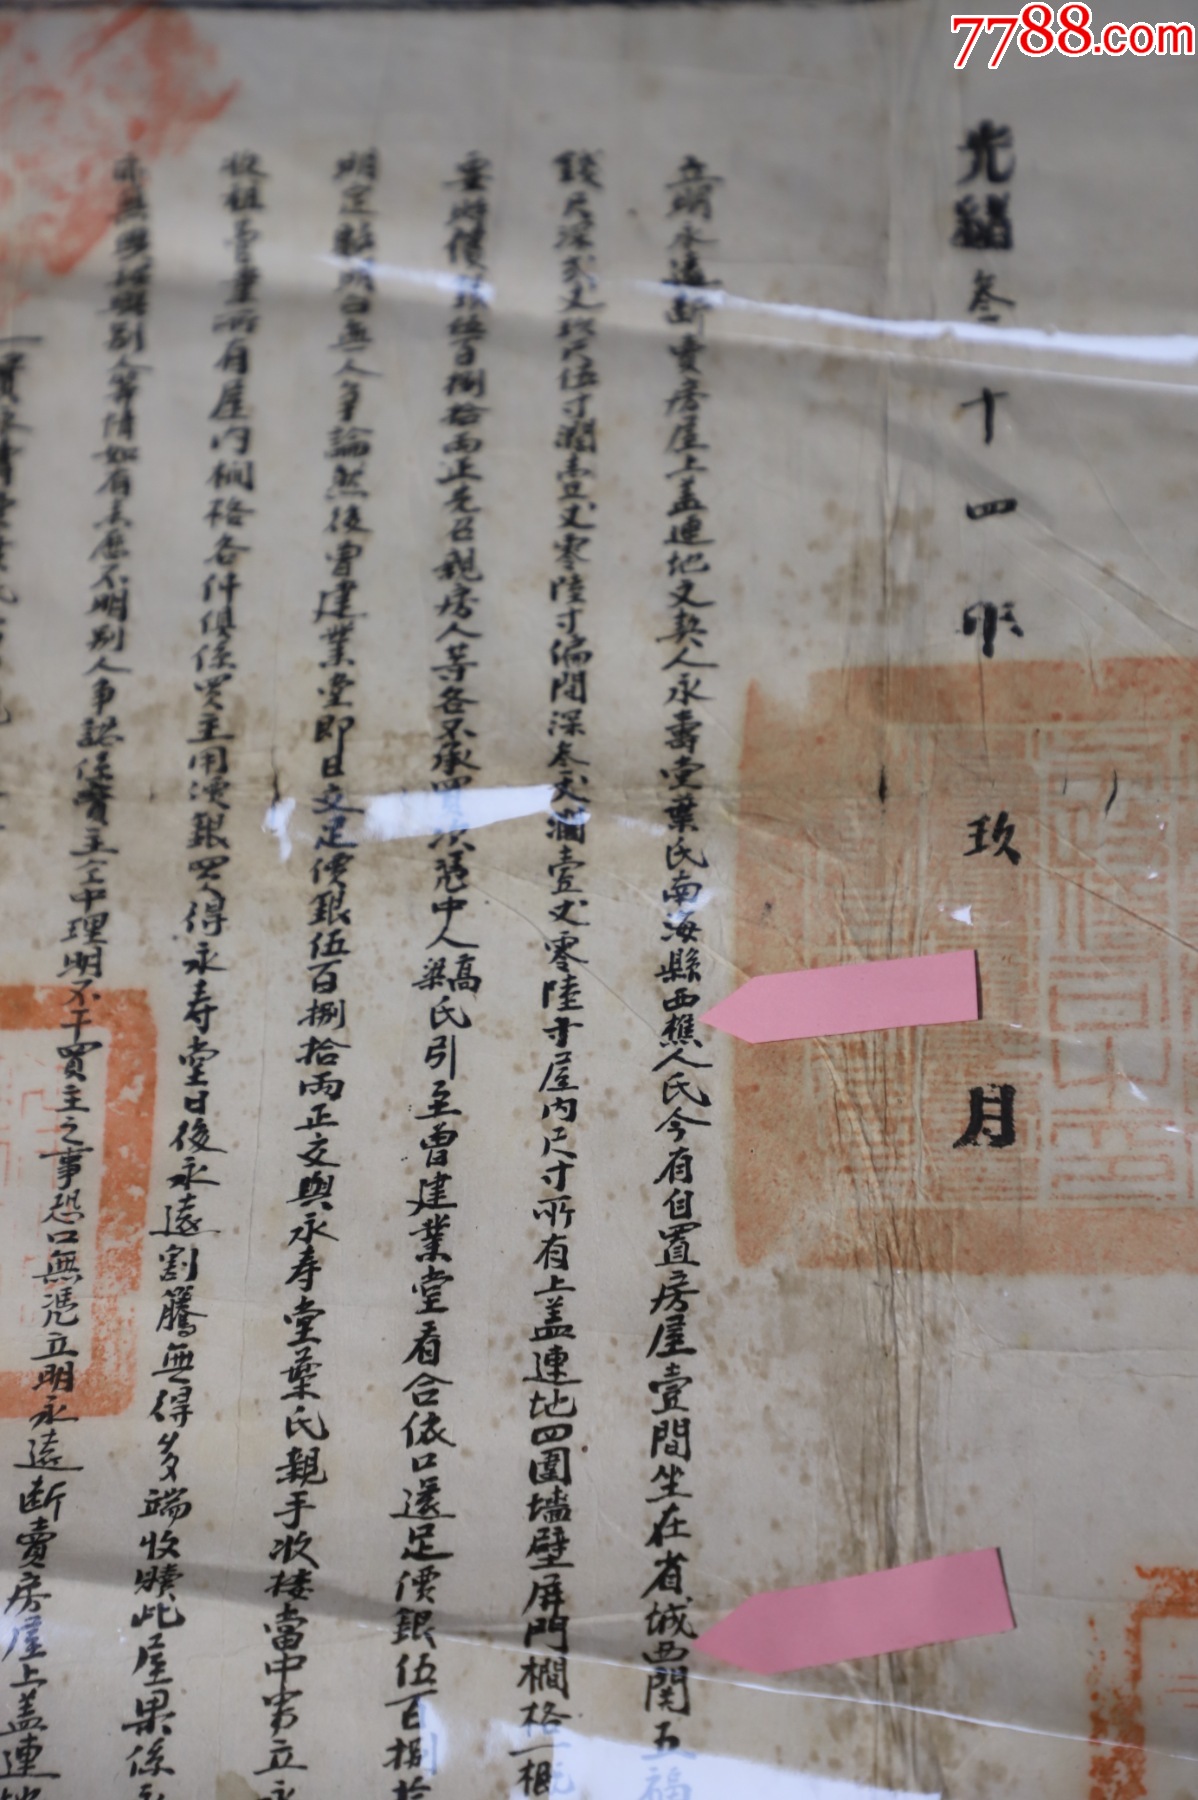 7788.com
光緒叁十四年玖月
立明永遠斷賣房屋上盖連地文契人永壽堂葉氏南海縣西樵人氏今有自置房屋壹間坐在省城西関五福
錢尺深弍丈玖尺伍寸濶壹丈零陸寸偏間深叁丈濶壹丈零陸寸屋内尺寸所有上盖連地四圍墻壁屏門櫊格一概
要時價銀伍百捌拾両正先召親房人等各不承買次憑中人高梁氏引至曾建業堂看合依口還足價銀伍百捌拾
明定帖明白無人争論然後曾建業堂即日交足價銀伍百捌拾両正交與永寿堂葉氏親手收楼當中宻立永
收租管業所有屋内櫊格各件俱係買主用價銀買得永寿堂日後永遠割籐無得多端收贖此屋果係
亦無典按與别人等情如有来歷不明别人争認係賣主仝中理明不干買主之事恐口無凴立明永遠断賣房屋上盖連地